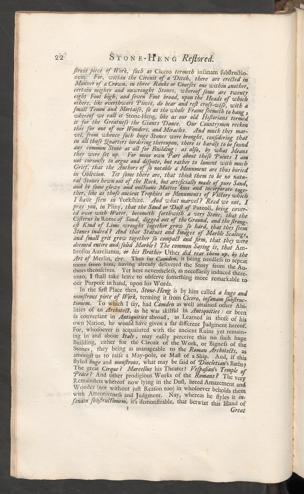 22 STONE-HENG Restored.
struit piece of Work, such as Cicero termeth insanam substructionem. For, within the Circuit of a Ditch, there are erected in
Manner of a Crown, in three Ranks or Courses one within another,
certain mighty and unwrought Stones, whereof some are twenty
eight Foot high, and seven Foot broad, upon the Heads of which
others, like overthwart Pieces, do bear and rest cross-wise, with a
small Tenon and Mortaise, so as the whole Frame seemeth to hang;
whereof we call it Stone-Heng, like as our old Historians termed
it for the Greatness the Giants Dance. Our Countrymen reckon
this for one of our Wonders, and Miracles. And much they marvel, from whence such huge Stones were brought, considering that
in all those Quarters bordering thereupon, there is hardly to be found
any common Stone at all for Building: as also, by what Means
they were set up. For mine own Part about these Points I am
not curiously to argue and dispute, but rather to lament with much
Grief, that the Authors of so notable a Monument are thus buried
in Oblivion. Yet some there are, that think them to be no natural Stones hewn out of the Rock, but artificially made of pure Sand,
and by some glewy and unctuous Matter knit and incorporate together, like as those ancient Trophies or Monuments of Victory which
I have seen in Yorkshire. And what marvel? Read we not, I
pray you, in Pliny, that the Sand or Dust of Puteoli, being covered over with Water, becometh forthwith a very Stone; that the
Cisterns in Rome of Sand, digged out of the Ground, and the strongest Kind of Lime, wrought together grow so hard, that they seem
Stones indeed? And that Statues and Images of Marble Scalings,
and small grit grow together so compact and firm, that they were
deemed entire and solid Marble? The common Saying is, that Ambrosius Aurelianus, or his Brother Uther did rear them up, by the
Art of Merlin, &c. Thus far Camden. It being needless to repeat
more from him, having already delivered the Story from the Authors themselves. Yet here nevertheless, as necessarily induced thereunto, I shall take leave to observe something more remarkable to
our Purpose in hand, upon his Words.
In the first Place then, Stone-Heng is by him called a huge and
monstrous piece of Work, terming it from Cicero, insanam substructionem. To which I say, had Camden as well attained other Abilities of an Architect, as he was skilful in Antiquities: or been
as conversant in Antiquities abroad, as Learned in those of his
own Nation, he would have given a far different Judgment hereof.
For, whosoever is acquainted with the ancient Ruins yet remaining in and about Italy, may easily perceive this no such huge
Building, either for the Circuit of the Work, or Bigness of the
Stones, they being as manageable to the Roman Architects, as
amongst us to raise a May-pole, or Mast of a Ship. And, if this
styled huge and monstrous, what may be said of Dioclesian's Baths?
The great Cirque? Marcellus his Theater? Vespasian's Temple of
Peace? And other prodigious Works of the Romans? The very
Remainders whereof now lying in the Dust, breed Amazement and
Wonder (not without just Reason too) in whosoever beholds them
with Attentiveness and Judgment. Nay, whereas he styles it insanam substructionem, it's demonstrable, that betwixt this Island of
Great